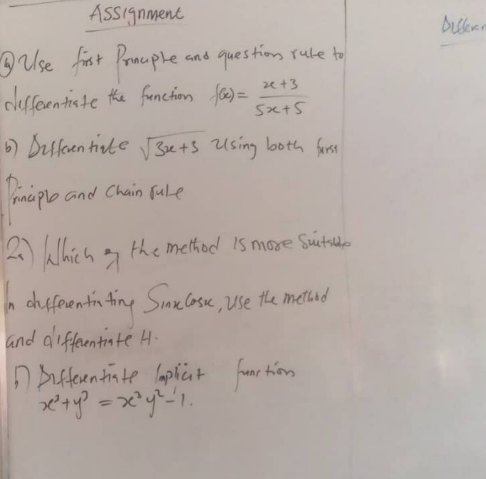 Assignment
a) Use first Principle and question rule to
differentiate the function f(x) = x+3 / 5x+5
b) Differentiate √3x+5 Using both first
Principle and Chain rule
2a) Which of the method is more Suitable
in differentiating Sinx Cosx, Use the method
and differentiate it.
b) Differentiate Implicit function
x³+y³ = x²y²-1.
Differen